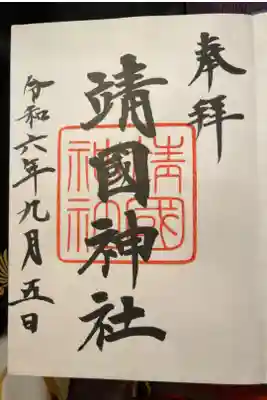 奉拝
靖國神社
靖國
神社
令和六年九月五日